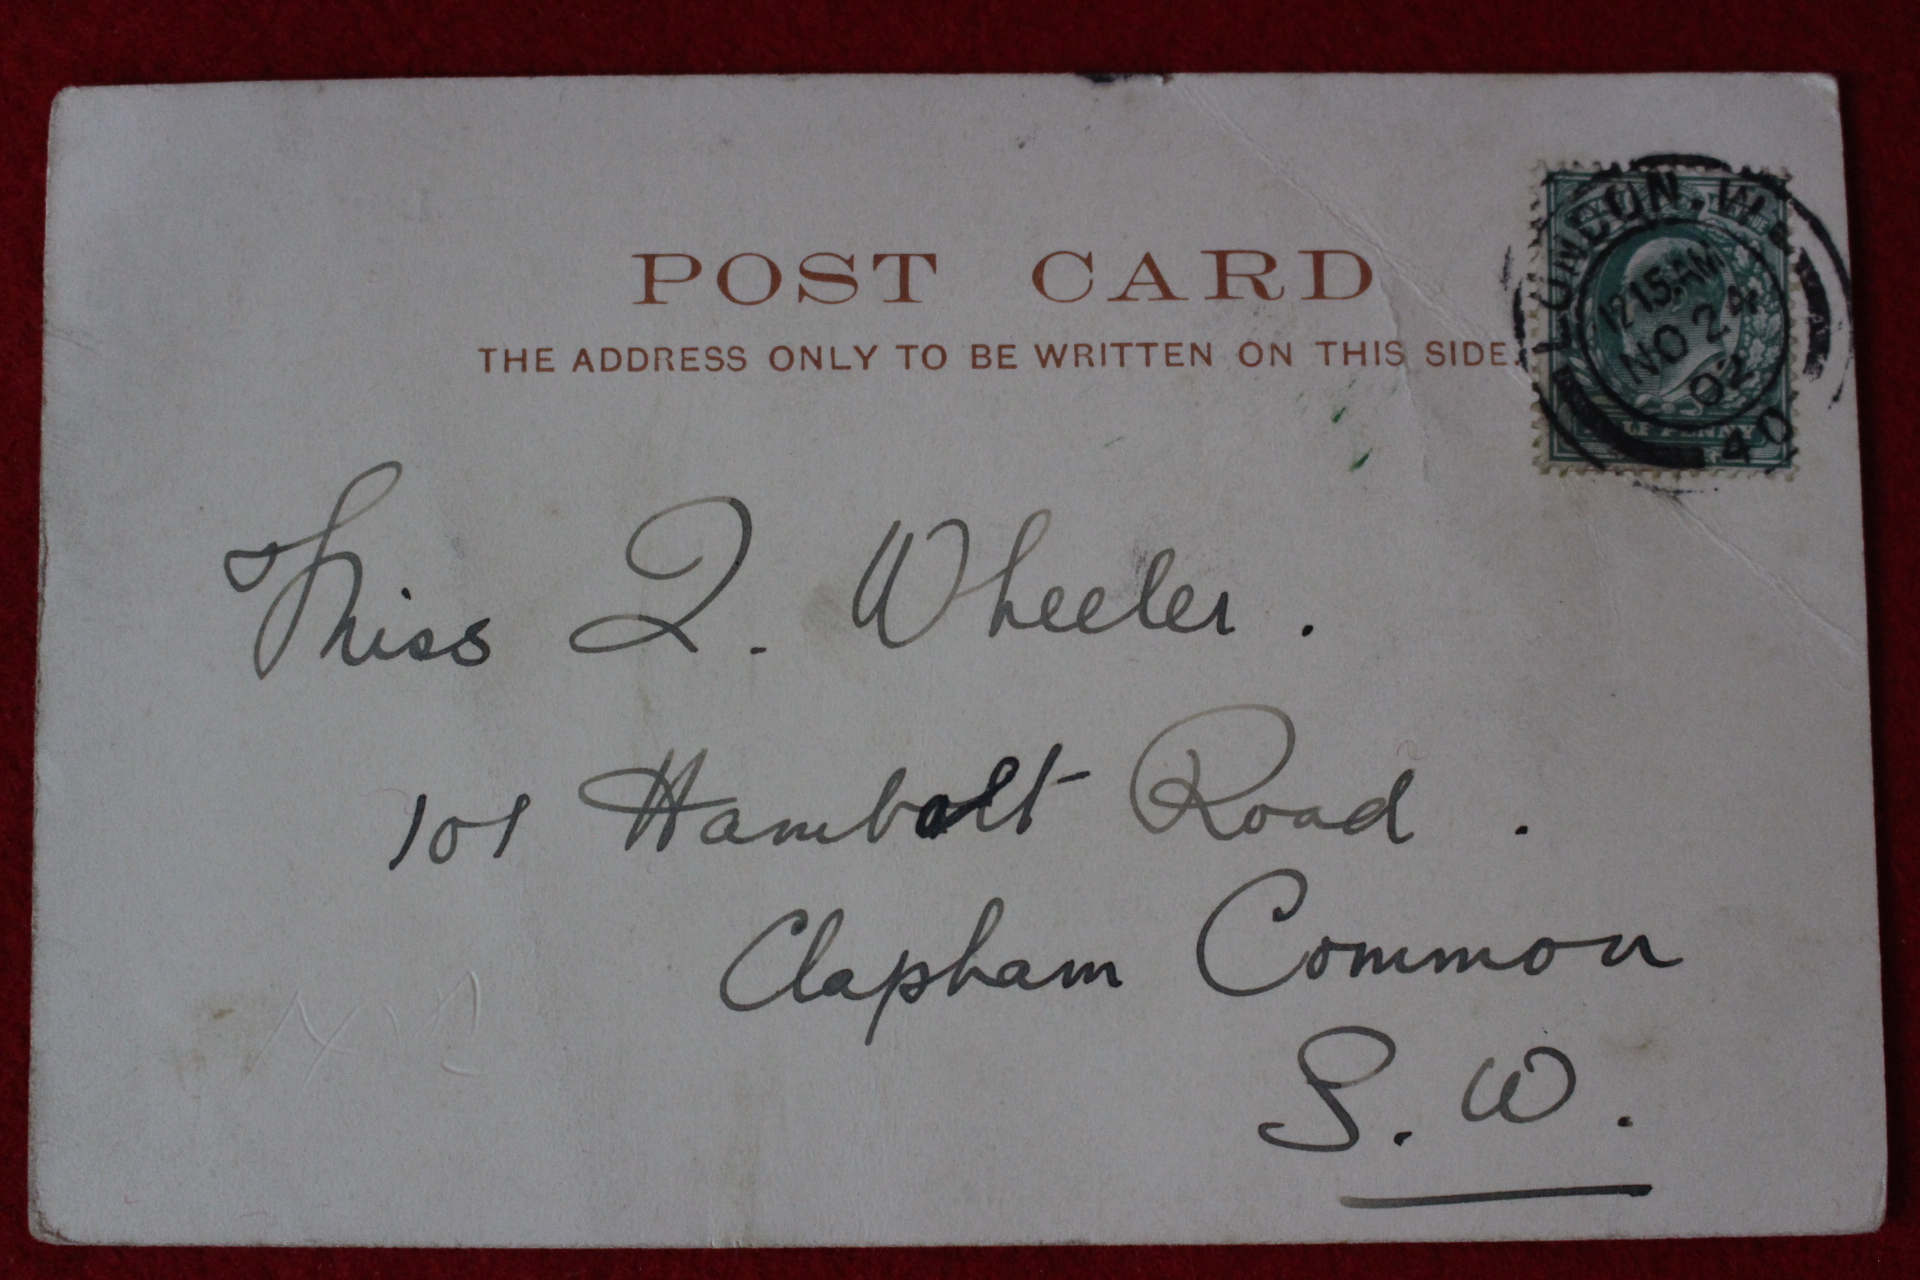 POST CARD
THE ADDRESS ONLY TO BE WRITTEN ON THIS SIDE
LONDON. W.C
12 15. AM
NO 24
02
40
HALFPENNY
Miss Q. Wheeler.
101 Hambolt Road.
Clapham Common
S. W.